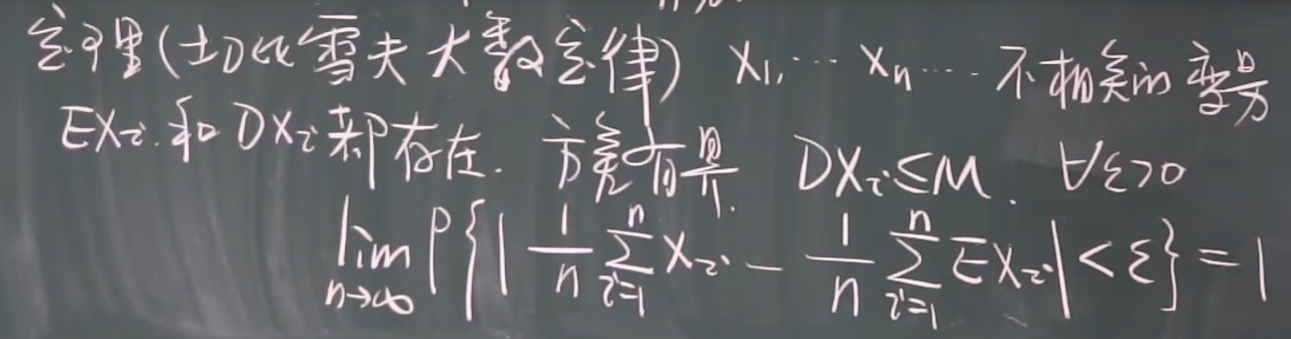 定理(切比雪夫大数定律) X₁,⋯ Xₙ ⋯ 不相关的变量
EXᵢ和DXᵢ都存在. 方差有界. DXᵢ≤M. ∀ε>0
lim_{n→∞} P{|1/n ∑_{i=1}^{n} Xᵢ - 1/n ∑_{i=1}^{n} EXᵢ|<ε}=1